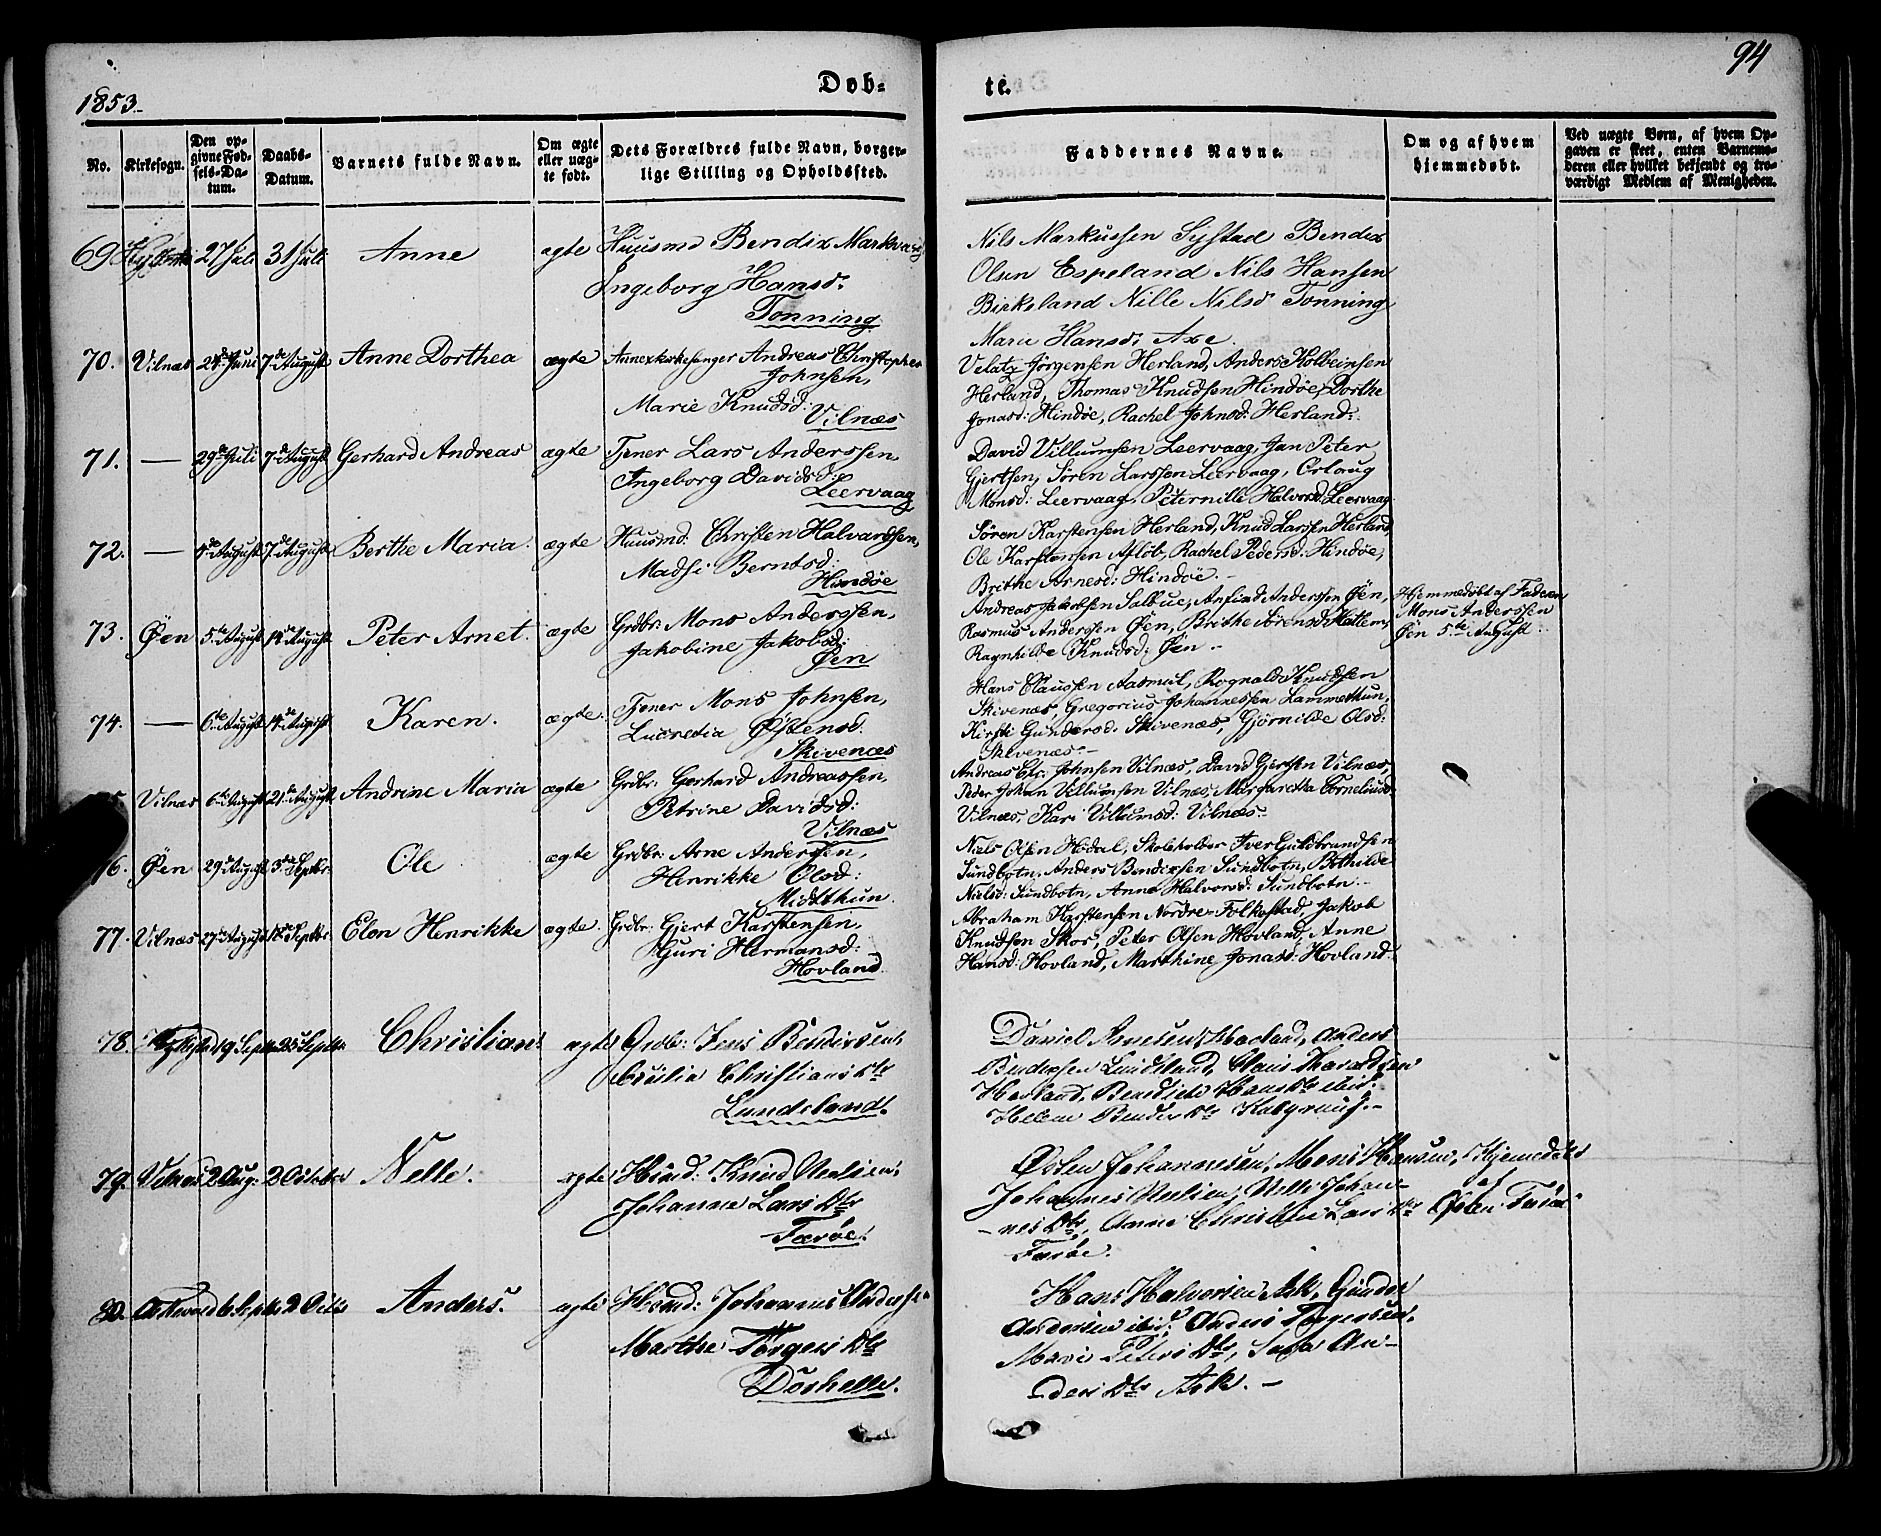 94
1853.
Døb-
te.
No.
Kirkesogn.
Den op-
givne Fød-
sels-Da-
tum.
Daabs-
Datum.
Barnets fulde Navn.
Om ægte
eller uæg-
te født.
Dets Forældres fulde Navn, borger-
lige Stilling og Opholdssted.
Faddernes Navne.
Om og af hvem
hjemmedøbt.
Ved uægte Børn, af hvem Op-
gaven er skeet, enten Barnemo-
deren eller hvilket bekjendt og tro-
værdigt Medlem af Menigheden.
69 27 Juli 31 Juli Anne ægte Huusmd Bendix
Ingeborg Hansd:
Tonning
Nils Markussen Systad Bendix
Olsen Espeland Nils Hansen
Birkeland Nille Nilsd Tonning
Marie Hansd: Axe.
70. Vilnæs 28de Juni 7de August Anne Dorthea ægte Annexkirkesanger Andreas Christopher
Johnsen,
Marie Knudsd:
Vilnæs
Jørgensen Herland, Anders Kolbeinsen
Herland, Thomas Knudsen Hindøe, Dorthe
Jonasd: Hindøe, Rachel Johnsd: Herland.
71. — 29de Juli 7de August Gerhard Andreas ægte Tjener Lars Anderssen,
Ingeborg Davidsd:
Leervaag
David Villumsen Leervaag, Jan Peter
Gjertsen, Søren Larssen Leervaag, Orloug
Monsd: Leervaag, Peternille Halvorsd: Leervaag
72. — August 7de August Berthe Maria. ægte Huusmd: Christen Halvardsen,
Madsi Berntsd:
Hindøe
Søren Karstensen Herland, Knud Larssen Herland,
Ole Karstensen Afløb, Rachel Pedersd: Hindøe,
Brithe Arnesd: Hindøe.
73. Øen 5te August 14de August Peter Arnet. ægte Grdbr: Mons Anderssen,
Jakobine Jakobsd:
Øen
Andreas Jakobsen Salbue, Anfind Anderssen Øen,
Rasmus Anderssen Øen, Brithe Sørensd: Hatlem,
Ragnhilde Knudsd: Øen.
Hjemmedøbt af Faderen
Mons Anderssen
Øen 5te August
74. — 6te August 14de August Karen. ægte. Tjener Mons Johnsen,
Lucretia Østensd.
Skivenæs
Hans Claussen Aasmul, Rognald Knudsen
Skivenæs, Gregorius Johannessen Lammethun,
Kirsti Gundersd. Skivenæs, Gjørnilde Olsd:
Skivenæs.
Vilnæs 6te August 21de August Andrine Maria ægte Grdbr: Gerhard Andreassen,
Petrine Davidsd:
Vilnæs
Andreas Chr: Johnsen Vilnæs, David Gjertsen Vilnæs,
Peder Johan Villumsen Vilnæs, Margaretha Corneliusd:
Vilnæs, Kari Villumsd: Vilnæs.
6. Øen 29de August 3de Septbr: Ole ægte Grdbr: Arne Andersen,
Henrikke Olsd:
Midtthun
Niels Olsen Hødal, Skoleholder Iver Guldbrandsen
Sundbotn, Anders Bendixsen Sundbotn, Bothilde
Nielsd: Sundbotn, Anne Halvorsd: Sundbotn.
77. Vilnæs 27de August Septbr. Elen Henrikke ægte. Grdbr: Gjert Karstensen,
Guri Hermansd:
Hovland
Abraham Karstensen Nordre-Folkestad, Jakob
Knudsen Skor, Peter Olsen Hovland, Anne
Hansd: Hovland, Marthine Jonasd: Hovland.
78. 19 Septbr 25 Septbr Christian ægte Grdbr: Jens Bendixsen,
Christians Dtr
Lundeland.
Daniel Anders
Bendixsen
Hanns Dtr ibid;
Helene Bendix Dtr
79. Vilnæs 2 Aug: 2 October Nelle. ægte Hsmd: Knud
Johanne Lars Dtr
Færøe.
Østen Johannesen, Mons Hansen,
Johannes Nelle Johan-
nes Dtr, Anne Christine Lars Dtr
Færøe.
Hjemedøbt
af
Østen Færøe
80. Askevold 6 Septbr 2 Octbr Anders. ægte Hsmd: Johannes
Marthe Torgers Dtr
Hans Halvorsen Ask,
Andersen ibid; Anders Torgersen,
Mari Peters Dtr, An-
ders Dtr Ask. —